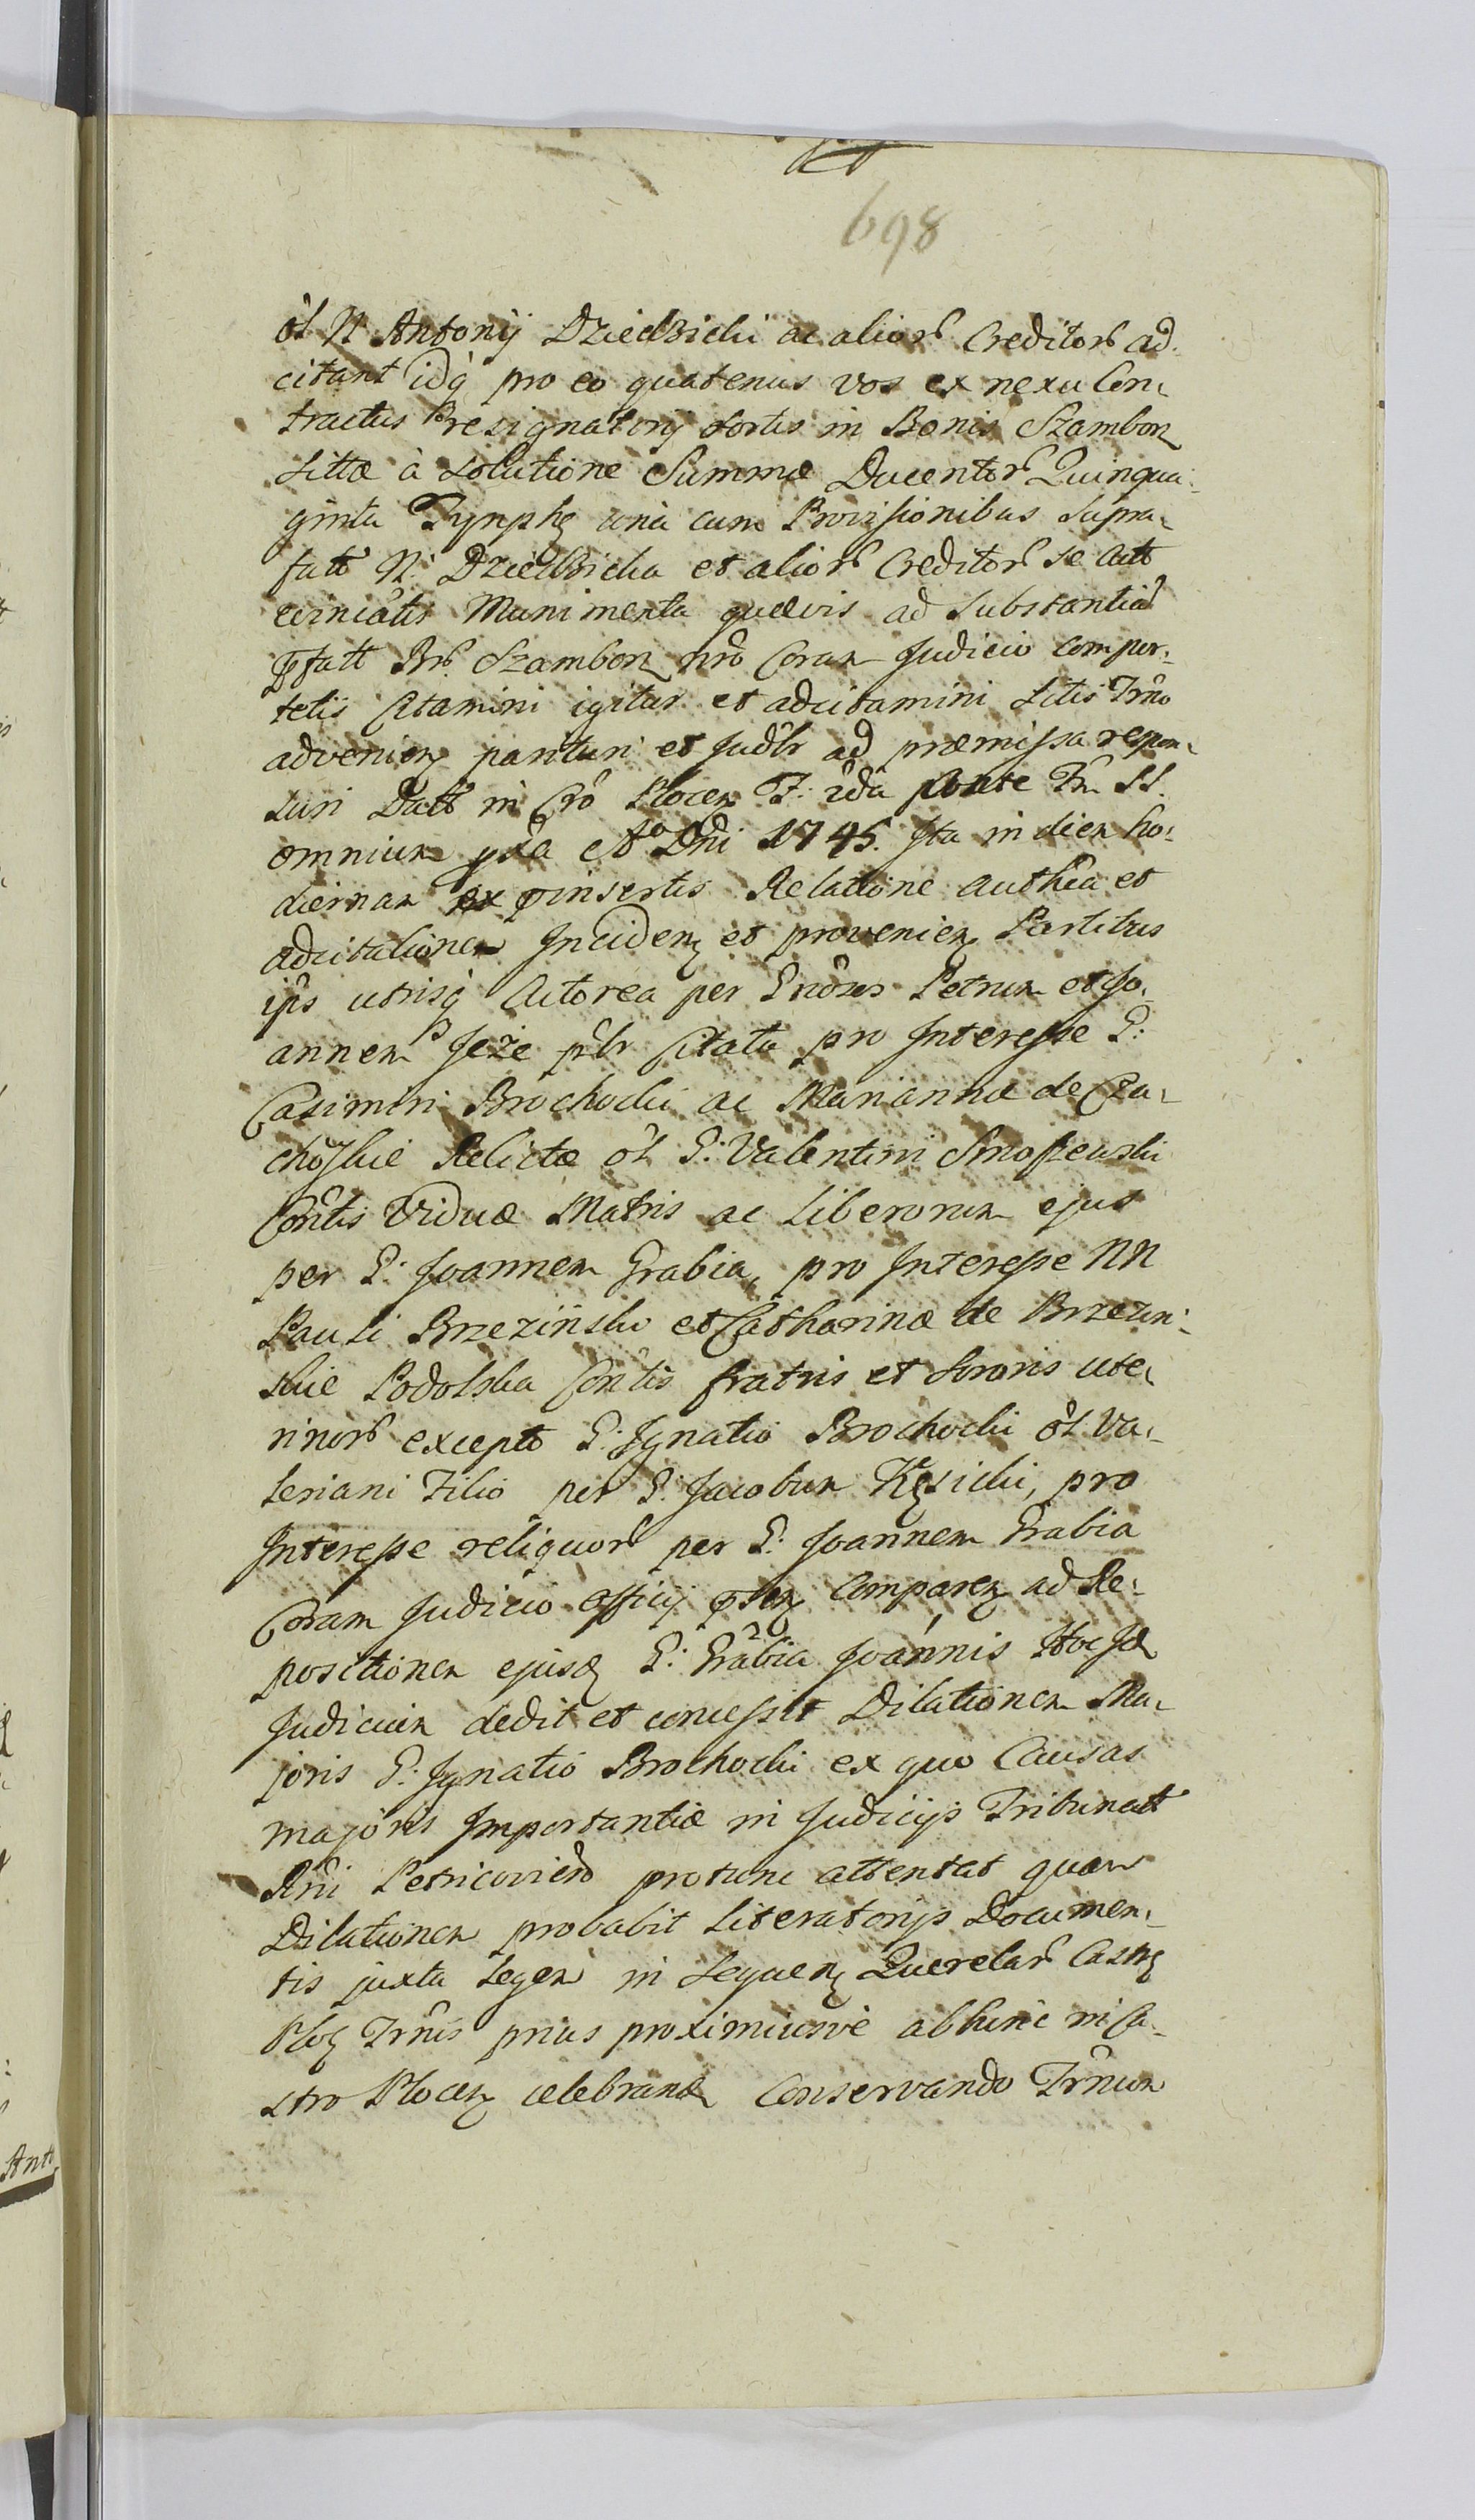 698
ol N Antonij Dziedzicki ac alior Creditor ad
citant idq pro eo quatenus vos ex nexu Con
tractus Resignatorij sortis in Bonis Szamborz
sittæ à solutione Summæ Ducentor Quinqua
ginta Tynph una cum Provisionibus supra
fatt N: Dziedzicka et alior Creditor se
evincatis Munimenta quævis ad substantia
pfatt Br Szamborz nro Coram Judicio compor
tetis Citamini igitur et adcitamini Litis Trno
advenien parituri et Judlr ad præmissa respon
suri Datt in Cro Plocen F: 2da poste Fm SS.
omnium pxa Ao Dni 1745. Ita in diem ho
diernam ex pinsertis Relatione authca et
adcitationem Inciden et provenien Partibus
ips utrisq Actorea per Gnoses Petrum et Jo
annem Jeże plr Citata pro Interesse G:
Casimiri Brochocki ac Mariannæ de Cza
choskie Relictæ ol G: Valentini Smoszewski
Contis Viduæ Matris ac Liberorum ejus
per G: Joannem Grabia, pro Interesse NN
Pauli Brzezinski et Catharinæ de Brzezin
skie Podolska Contis fratris et sororis ute
rinor excepto G: Ignatio Brochocki ol Va
leriani Filio per G: Jacobum Kęsicki, pro
Interesse reliquor per G: Joannem Grabia
Coram Judicio Officij psen Comparen ad Re
positionem ejusd G: Grabia Joannis Hoc Jd
Judicium dedit et concessit Dilationem Ma
joris G: Ignatio Brochocki ex quo Causas
majoris Importantiæ in Judicijs Tribunatt
Rni Petricovien protunc attentat quam
Dilationem probabit Literatorijs Documen
tis juxta Legem in sequen Querelar Castr
Ploc Trnis prius proximiusve abhinc in Ca
stro Plocen celebrand Conservando Trnum
Antt